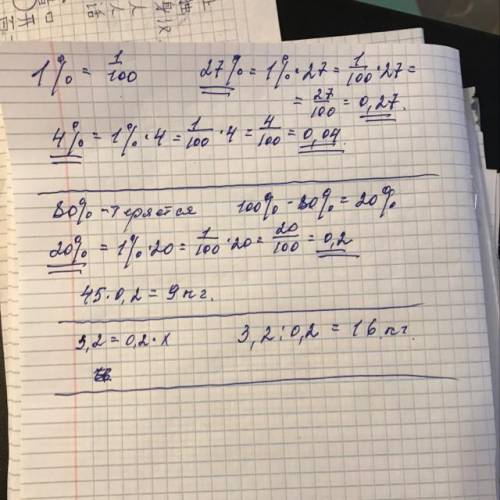 1% = 1/100   27% = 1%·27 = 1/100·27 =
= 27/100 = 0,27.
4% = 1%·4 = 1/100·4 = 4/100 = 0,04.
80% - теряется   100% - 80% = 20%
20% = 1%·20 = 1/100·20 = 20/100 = 0,2
45·0,2 = 9 кг.
3,2 = 0,2·x   3,2 : 0,2 = 16 кг.